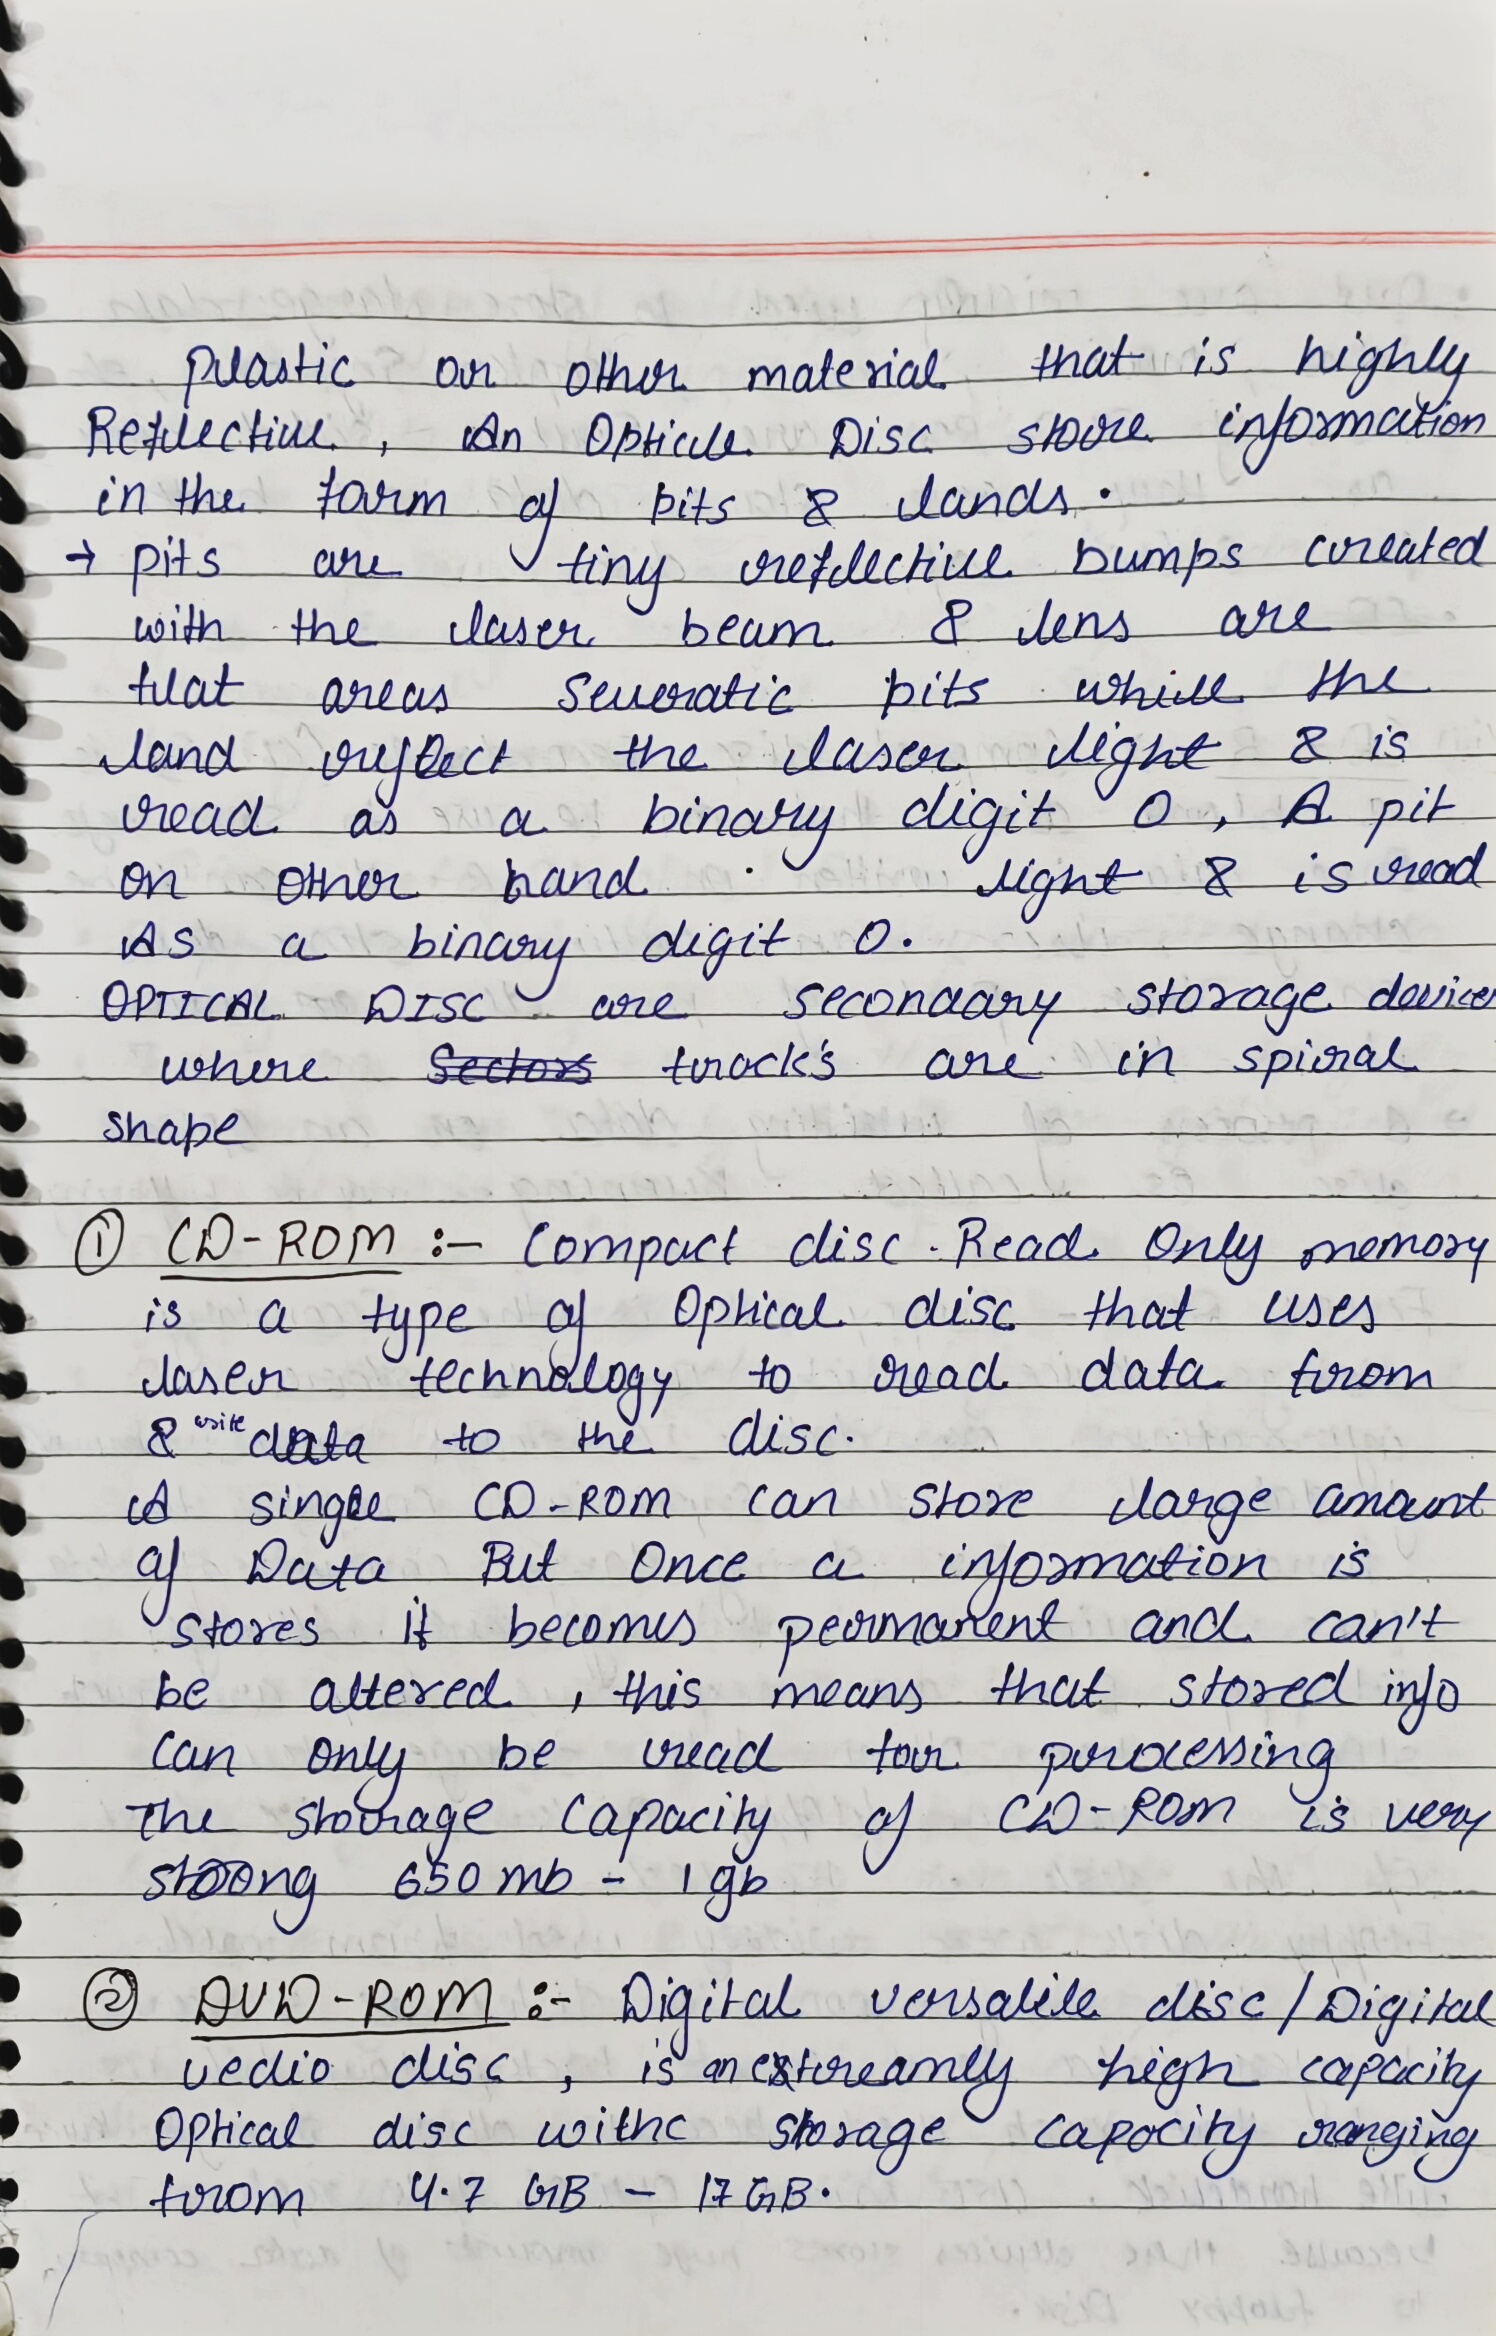 plastic or other material that is highly
Reflective, An Optical Disc store information
in the form of pits & lands.
→ pits are tiny reflective bumps created
with the laser beam & lens are
flat areas pits while the
land reflect the laser light & is
read as a binary digit 0, A pit
on other hand light & is read
As a binary digit 0.
OPTICAL DISC are secondary storage devices
where Sectors track's are in spiral
shape
① CD-ROM :- Compact disc. Read Only memory
is a type of Optical disc that uses
laser technology to read data from
& write data to the disc.
A single CD-ROM can store large amount
of Data But Once a information is
stores it becomes permanent and can't
be altered, this means that stored info
can only be read for processing
The storage capacity of CD-ROM is very
strong 650 mb - 1 gb
② DVD-ROM :- Digital versatile disc / Digital
vedio disc, is an extreamly high capacity
Optical disc withc storage capacity ranging
from 4.7 GB - 17 GB.